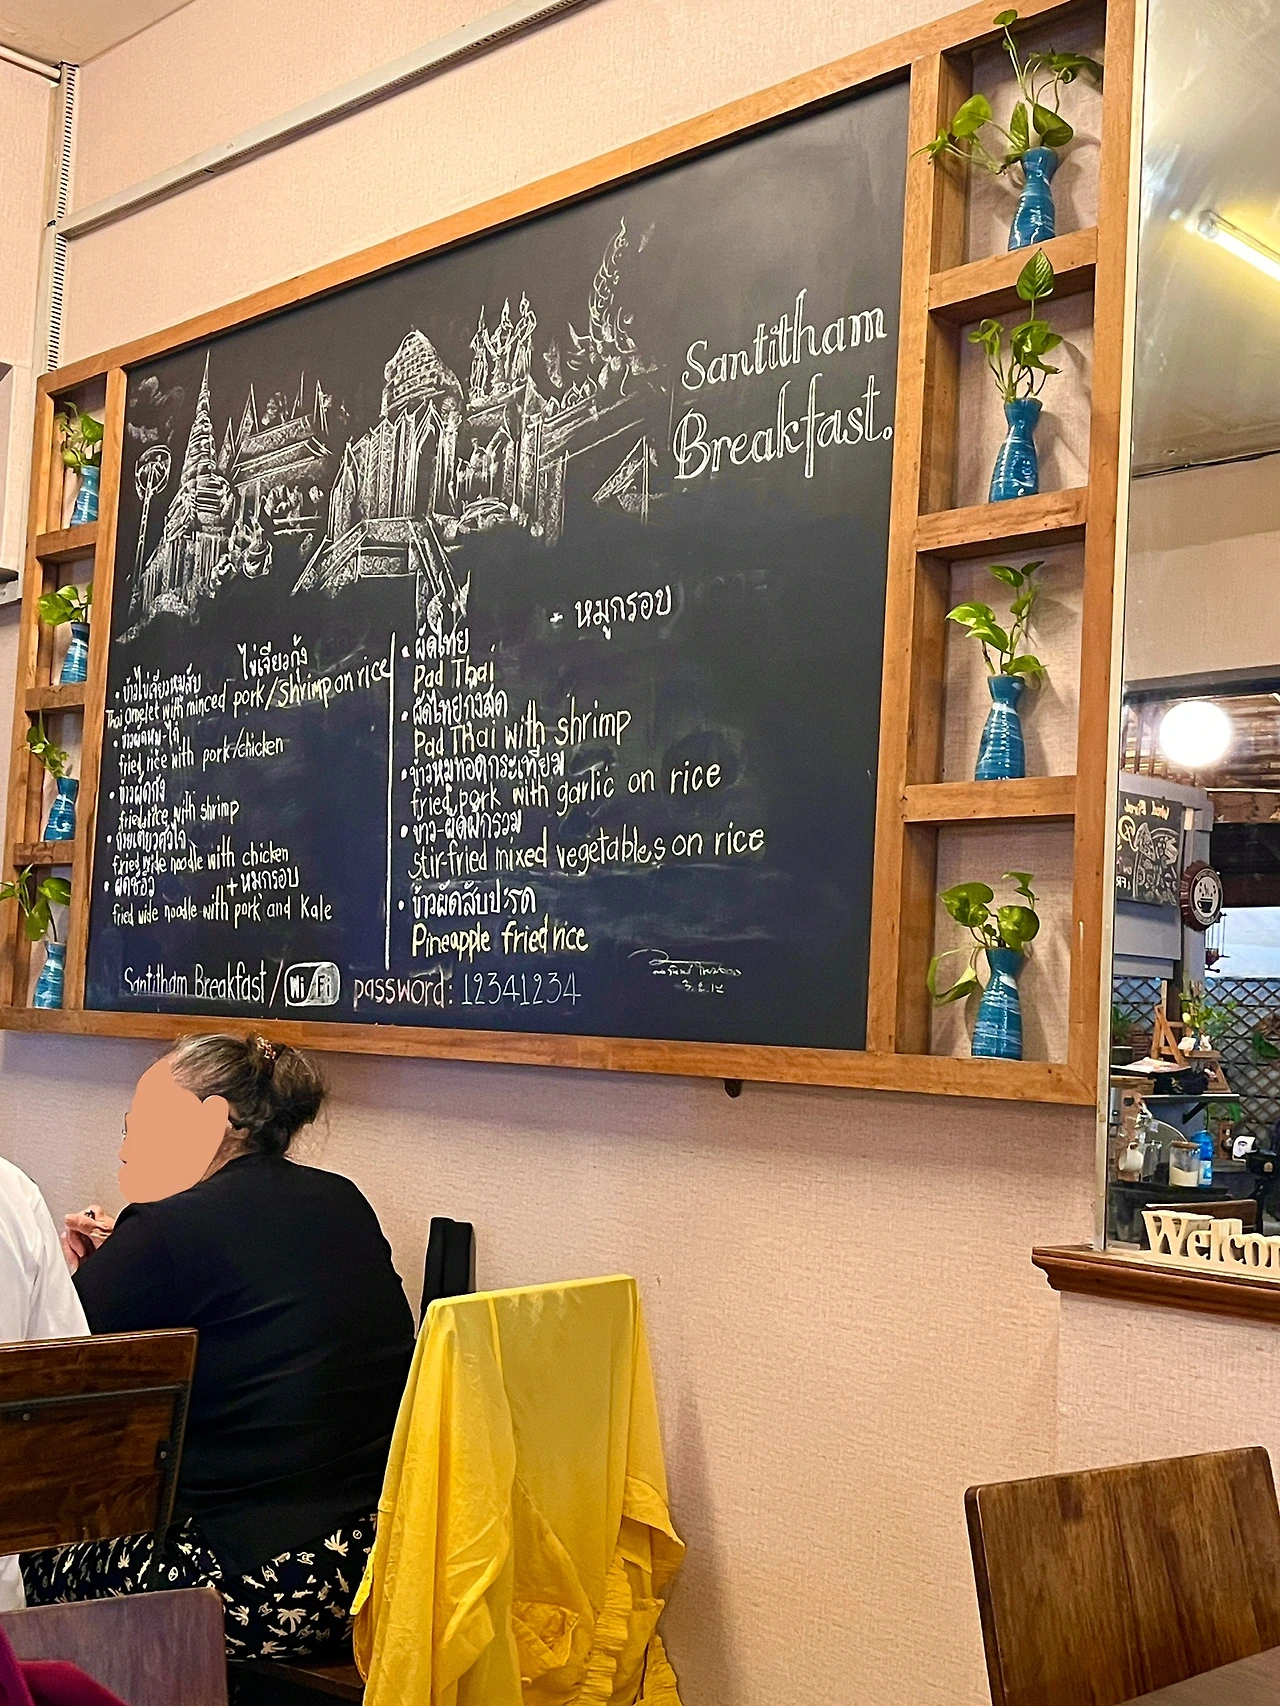 Santitham
Breakfast.
- หมูกรอบ
ไข่เจียวกุ้ง
• ข้าวไข่เจียวหมูสับ
Thai omelet with minced pork/Shrimp on rice
• ข้าวผัดหมู-ไก่
fried rice with pork/chicken
• ข้าวผัดกุ้ง
fried rice with shrimp
•
fried wide noodle with chicken
• ผัดซีอิ๊ว +หมูกรอบ
fried wide noodle with pork and Kale
• ผัดไทย
Pad Thai
• ผัดไทยกุ้งสด
Pad Thai with shrimp
• ข้าวหมูทอดกระเทียม
fried pork with garlic on rice
• ข้าว-ผัดผักรวม
Stir-fried mixed vegetables on rice
• ข้าวผัดสับปะรด
Pineapple fried rice
Santitham Breakfast / Wi Fi password: 12341234
Welcom